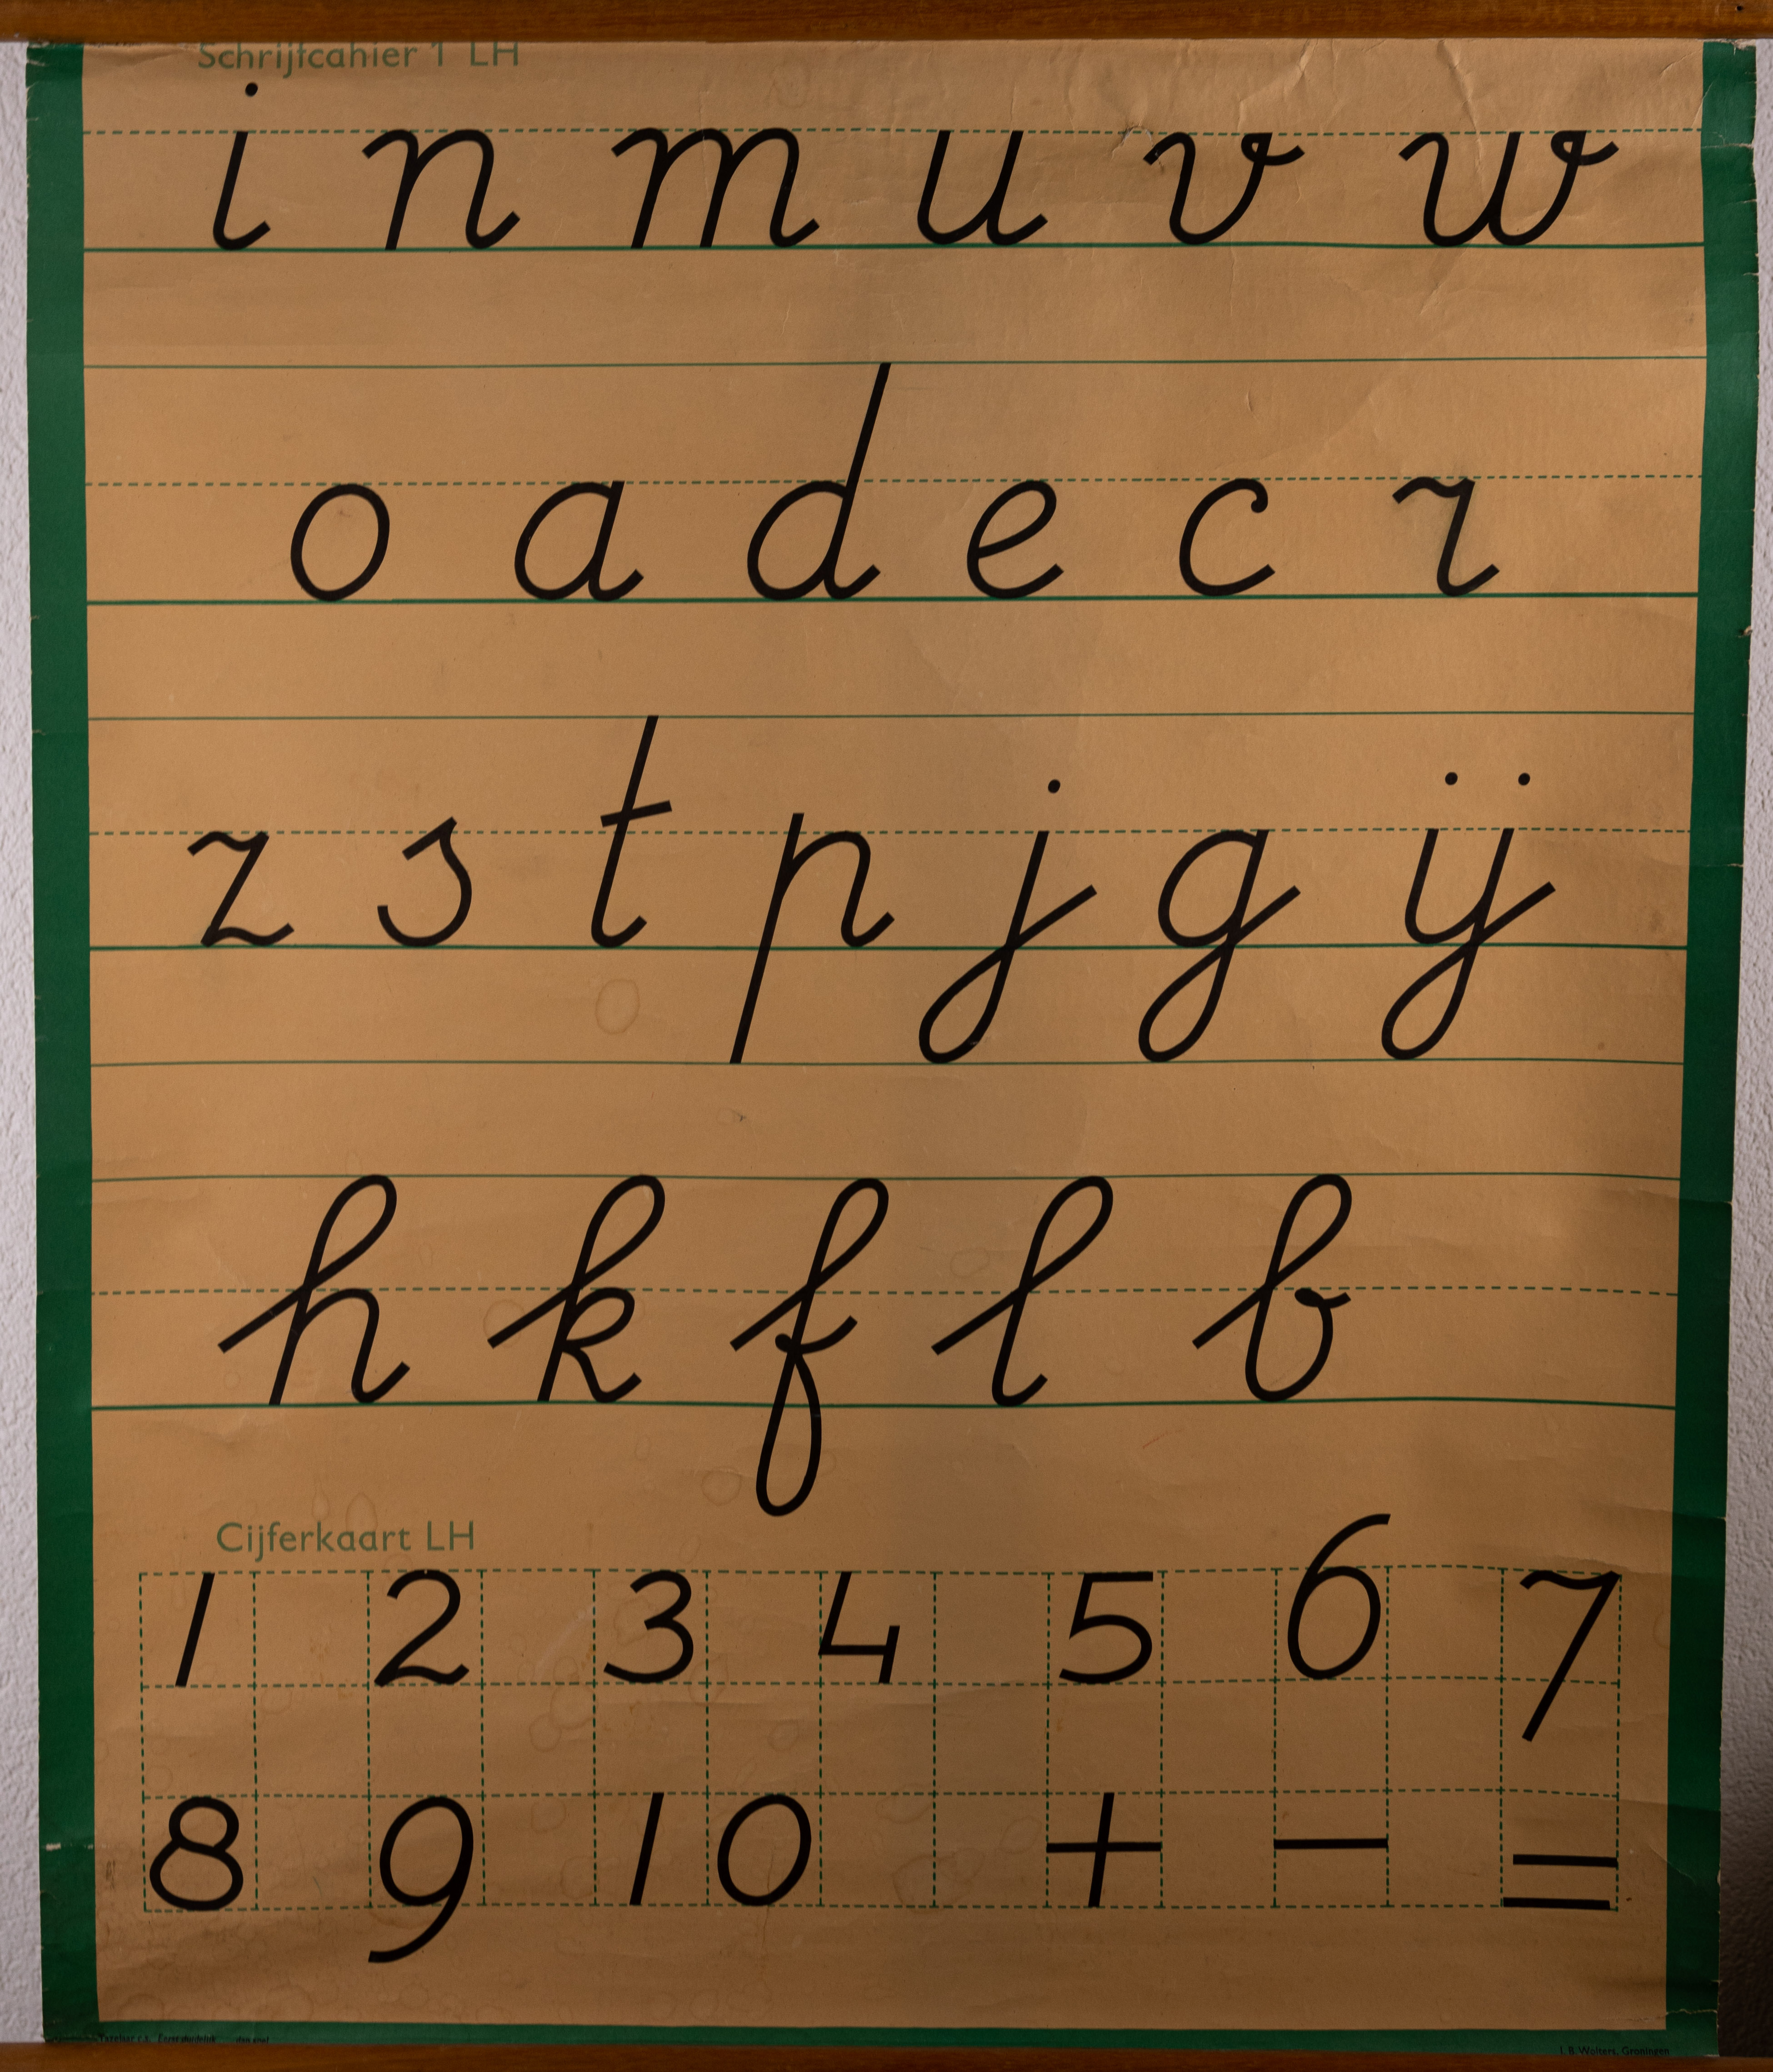 Schrijfcahier 1 LH
i n m u v w
o a d e c r
z s t p j g ij
h k f l b
Cijferkaart LH
1 2 3 4 5 6 7
8 9 10 + − =
J. B. Wolters, Groningen